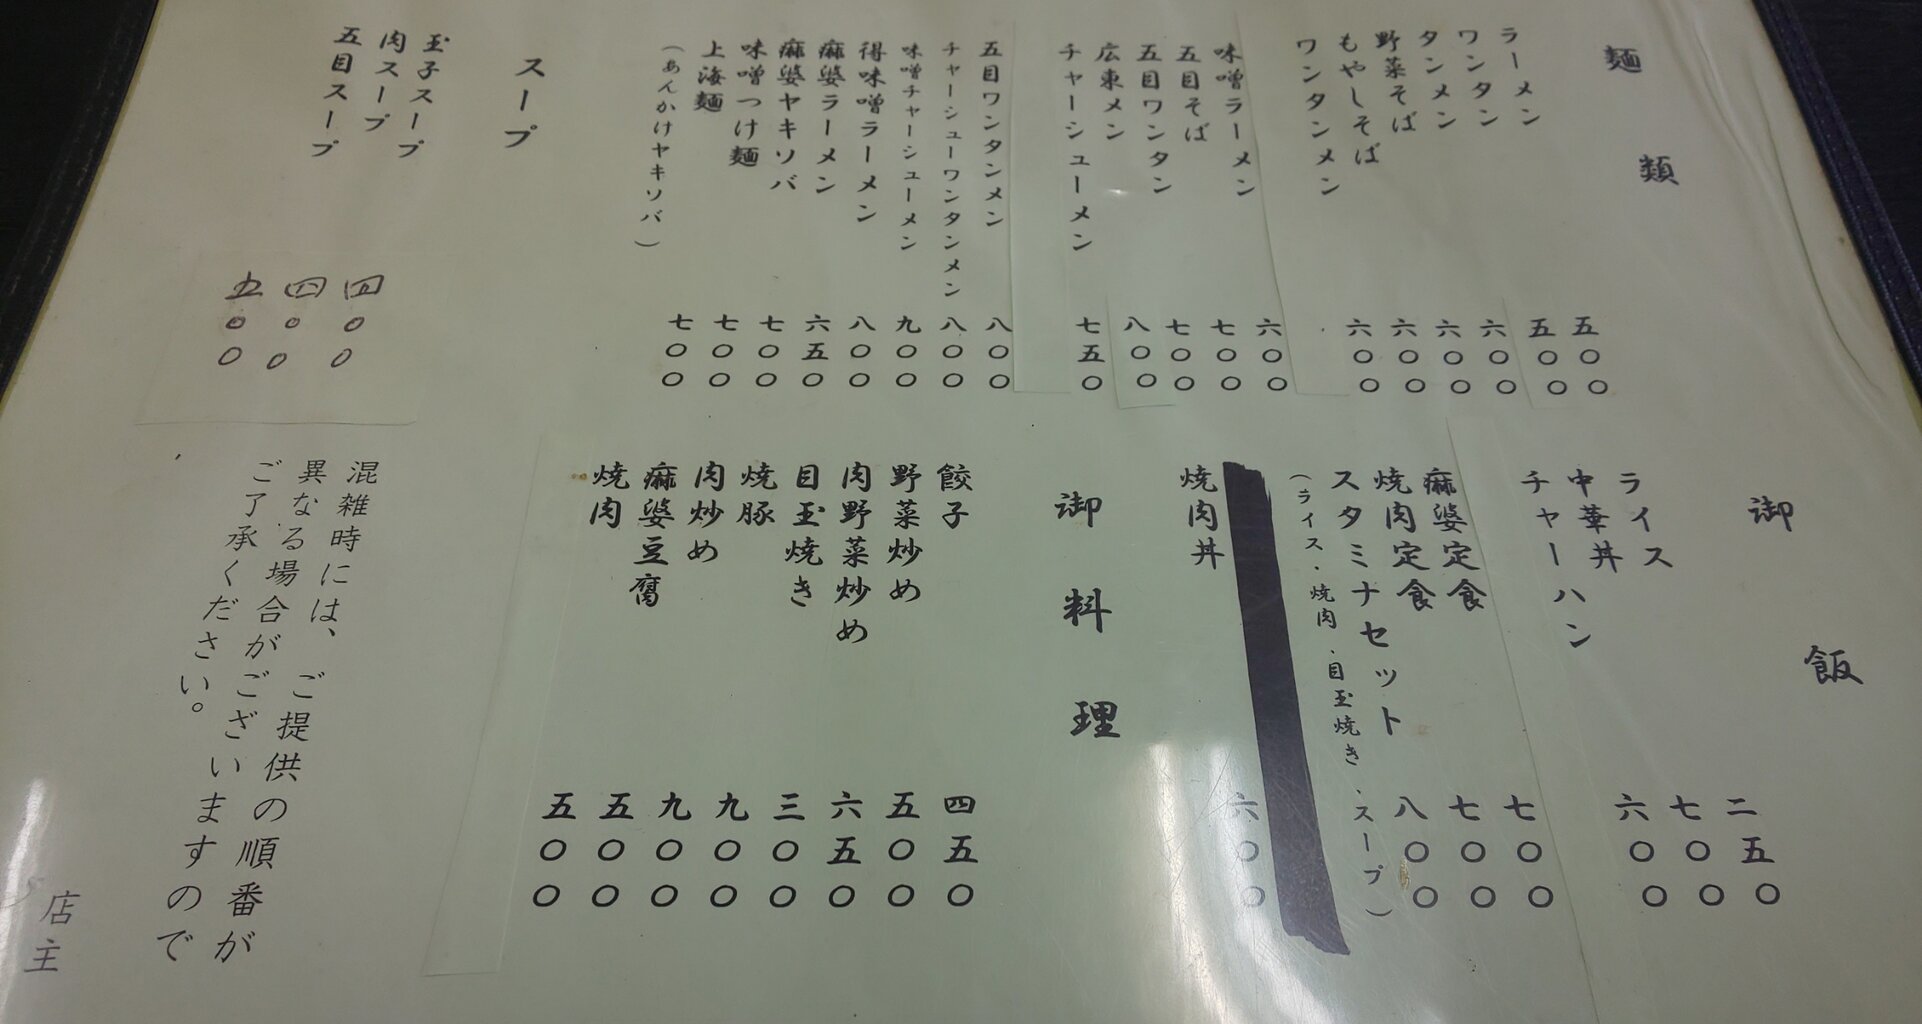 麺類
ラーメン 五〇〇
ワンタン 五〇〇
タンメン 六〇〇
野菜そば 六〇〇
もやしそば 六〇〇
ワンタンメン 六〇〇
味噌ラーメン 六〇〇
五目そば 七〇〇
五目ワンタン 七〇〇
広東メン 八〇〇
チャーシューメン 七五〇
五目ワンタンメン 八〇〇
チャーシューワンタンメン 八〇〇
味噌チャーシューメン 九〇〇
得味噌ラーメン 八〇〇
麻婆ラーメン 六五〇
麻婆ヤキソバ 七〇〇
味噌つけ麺 七〇〇
上海麺 七〇〇
(あんかけヤキソバ)
スープ
玉子スープ 四〇〇
肉スープ 四〇〇
五目スープ 五〇〇
御飯
ライス 二五〇
中華丼 七〇〇
チャーハン 六〇〇
麻婆定食 七〇〇
焼肉定食 七〇〇
スタミナセット 八〇〇
(ライス・焼肉・目玉焼き・スープ)
焼肉丼 六〇〇
御料理
餃子 四五〇
野菜炒め 五〇〇
肉野菜炒め 六五〇
目玉焼き 三〇〇
焼豚 九〇〇
肉炒め 九〇〇
麻婆豆腐 五〇〇
焼肉 五〇〇
混雑時には、ご提供の順番が
異なる場合がございますので
ご了承ください。
店主